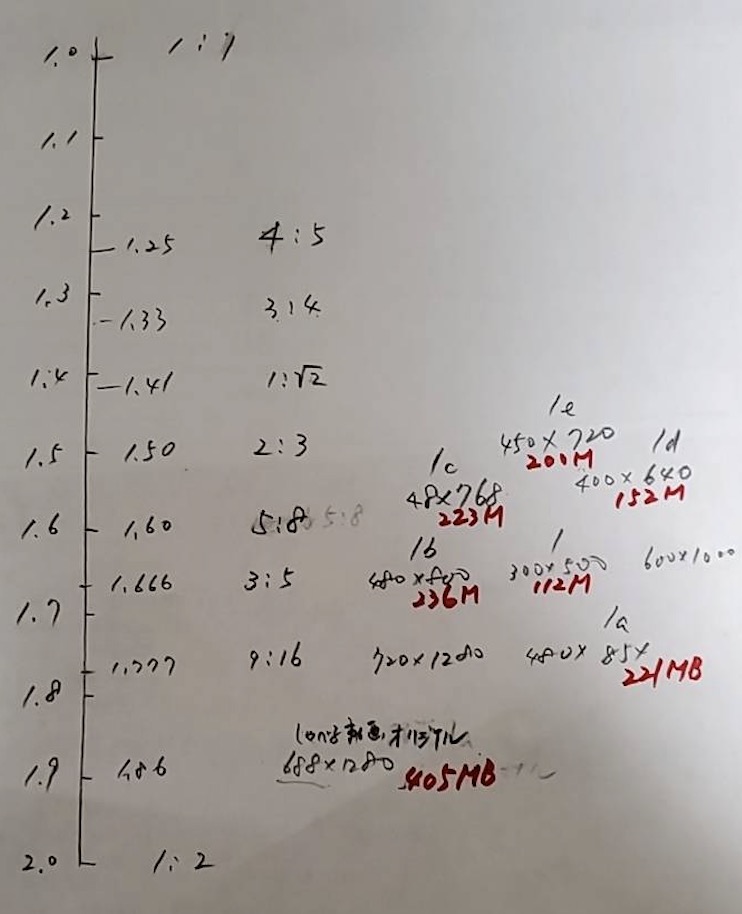 1.0 1:1
1.1
1.2
1.25 4:5
1.3
1.33 3:4
1.4 1.41 1:√2
1e
450×720
200M
1d
400×640
152M
1.5 1.50 2:3
1c
48×768
223M
1.6 1.60 5:8 5:8
1b
480×800
236M
1
300×500
112M
600×1000
1.666 3:5
1.7
1a
480×85×
221MB
1.777 9:16 720×1280
1.8
動画オリジナル
688×1280 405MB
1.9 1.86
2.0 1:2